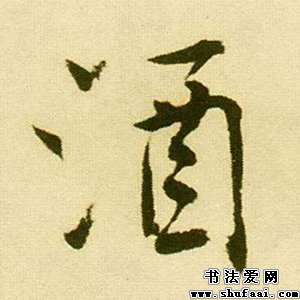 酒
书法爱网
www.shufaai.com